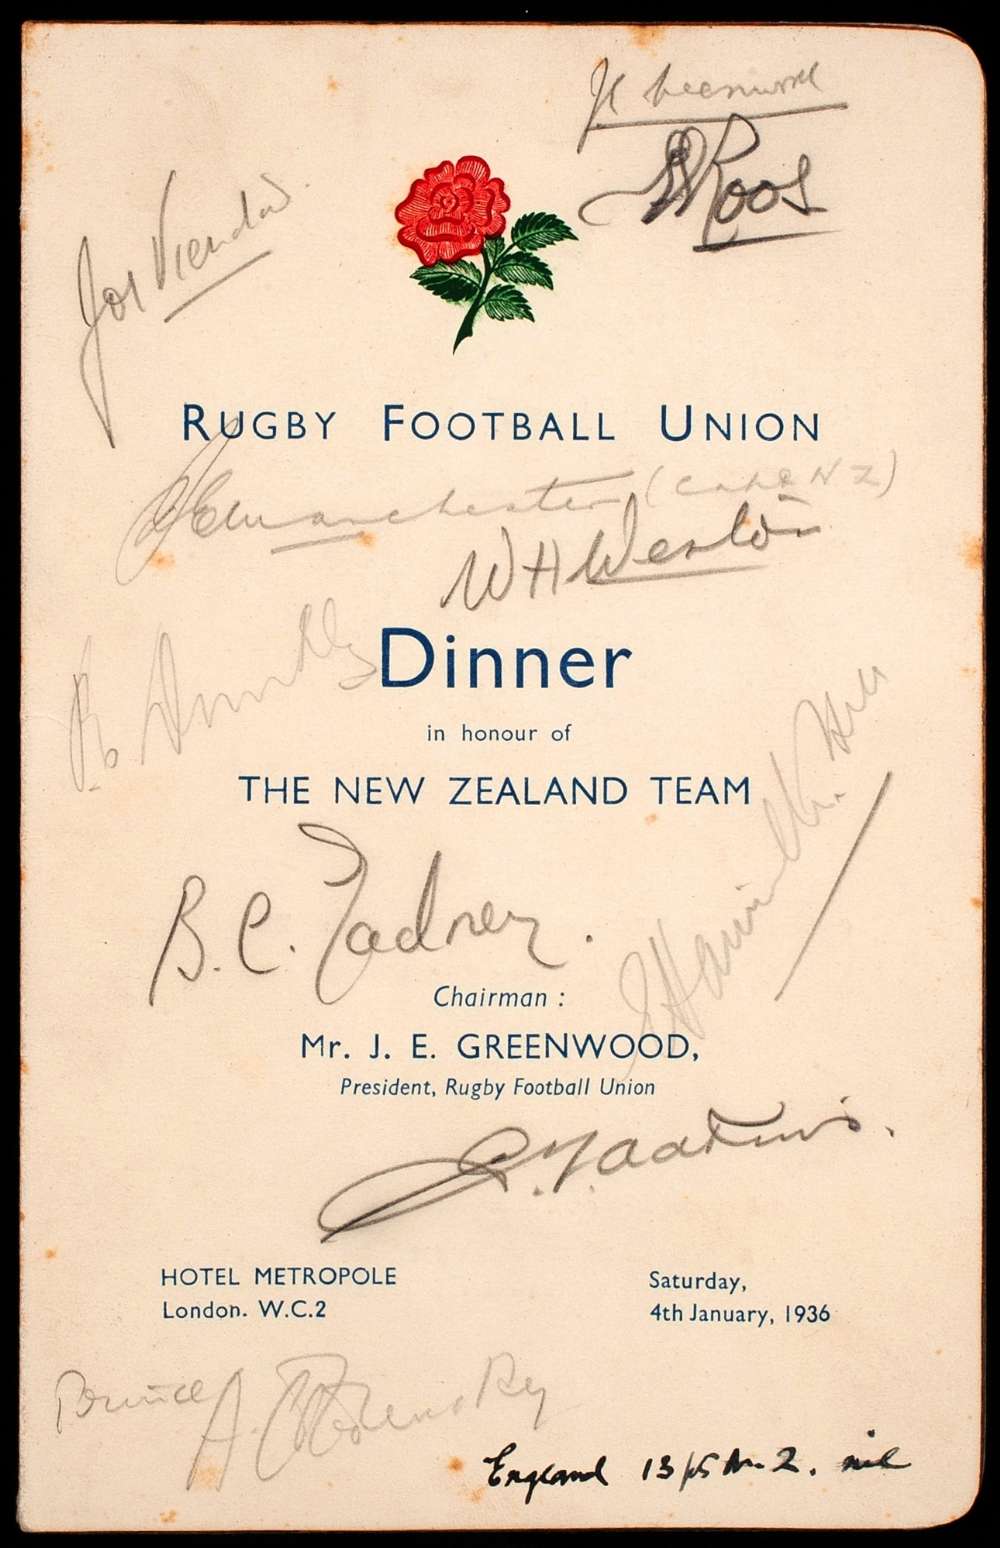 Roos
RUGBY FOOTBALL UNION
J E Manchester (Capt NZ)
W H Weston
Dinner
in honour of
THE NEW ZEALAND TEAM
B. C. Gadney.
E Hamilton-Hill
Chairman :
Mr. J. E. GREENWOOD,
President, Rugby Football Union
HOTEL METROPOLE
London. W.C.2
Saturday,
4th January, 1936
Prince A. Obolensky
England 13 pts N. Z. nil